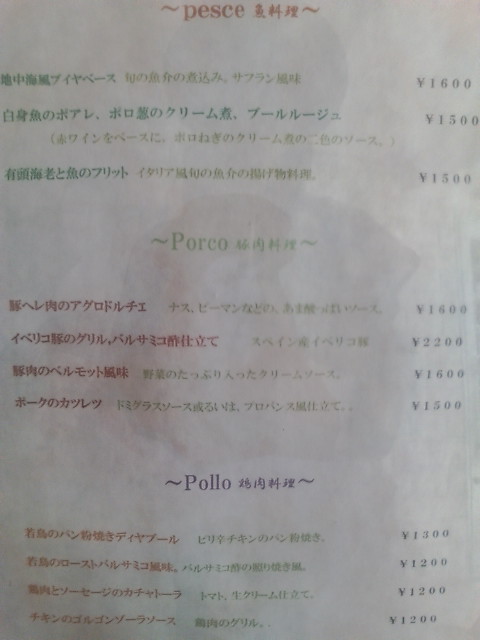 ～pesce 魚料理～
地中海風ブイヤベース 旬の魚介の煮込み。サフラン風味 ￥1600
白身魚のポアレ、ポロ葱のクリーム煮、ブールルージュ ￥1500
（赤ワインをベースに。ポロねぎのクリーム煮の二色のソース。）
有頭海老と魚のフリット イタリア風旬の魚介の揚げ物料理。 ￥1500
～Porco 豚肉料理～
豚ヘレ肉のアグロドルチェ ナス、ピーマンなどの、あま酸っぱいソース。 ￥1600
イベリコ豚のグリル,バルサミコ酢仕立て スペイン産イベリコ豚 ￥2200
豚肉のベルモット風味 野菜のたっぷり入ったクリームソース。 ￥1600
ポークのカツレツ ドミグラスソース或るいは、プロバンス風仕立て。. ￥1500
～Pollo 鶏肉料理～
若鳥のパン粉焼きディヤブール ピリ辛チキンのパン粉焼き。 ￥1300
若鳥のローストバルサミコ風味。バルサミコ酢の照り焼き風。 ￥1200
鶏肉とソーセージのカチャトーラ トマト。生クリーム仕立て。 ￥1200
チキンのゴルゴンゾーラソース 鶏肉のグリル。. ￥1200